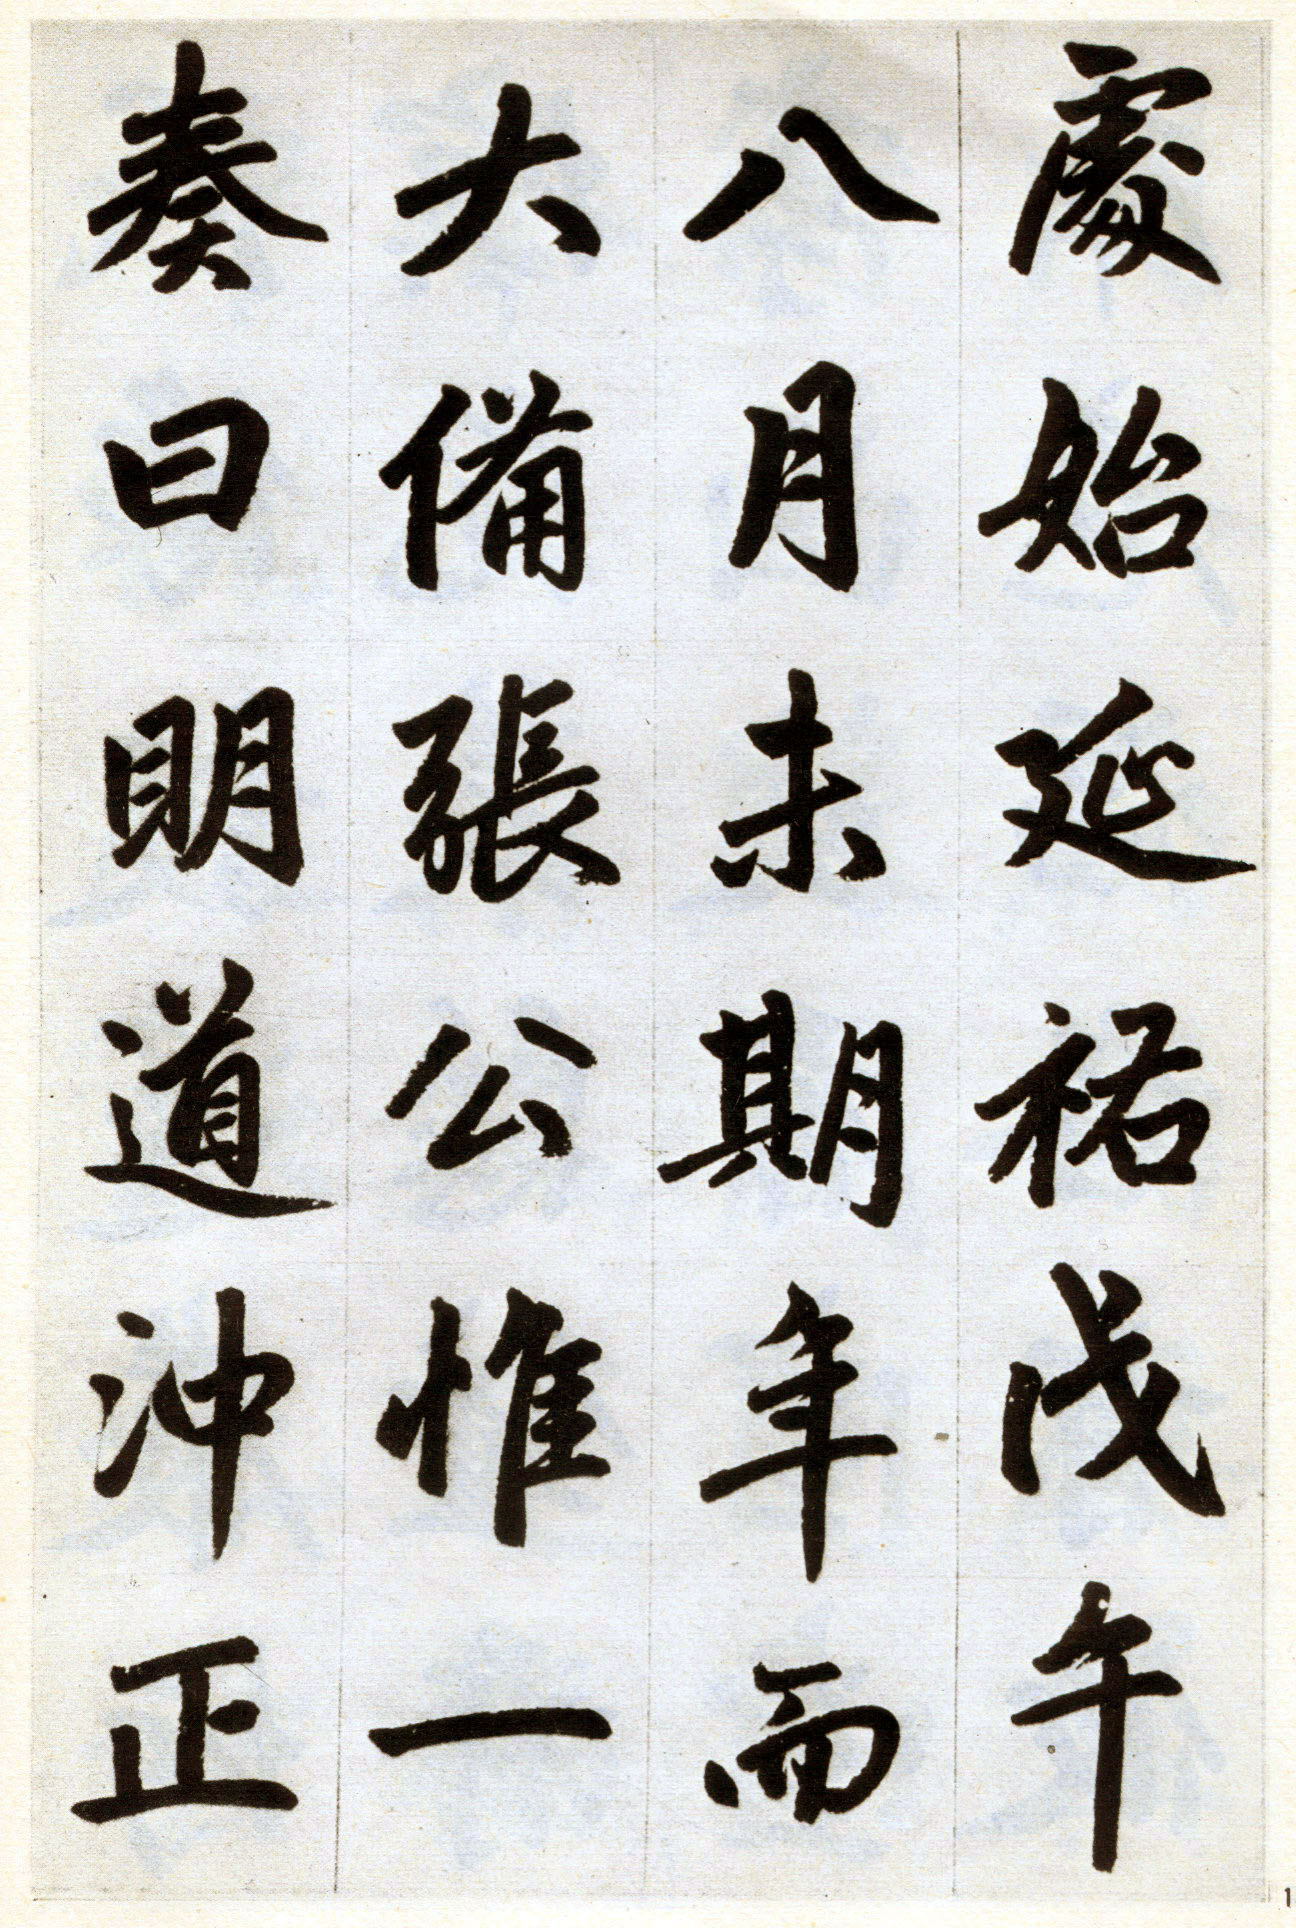 處始延祐戊午
八月未期年而
大備張公惟一
奏曰明道沖正
1